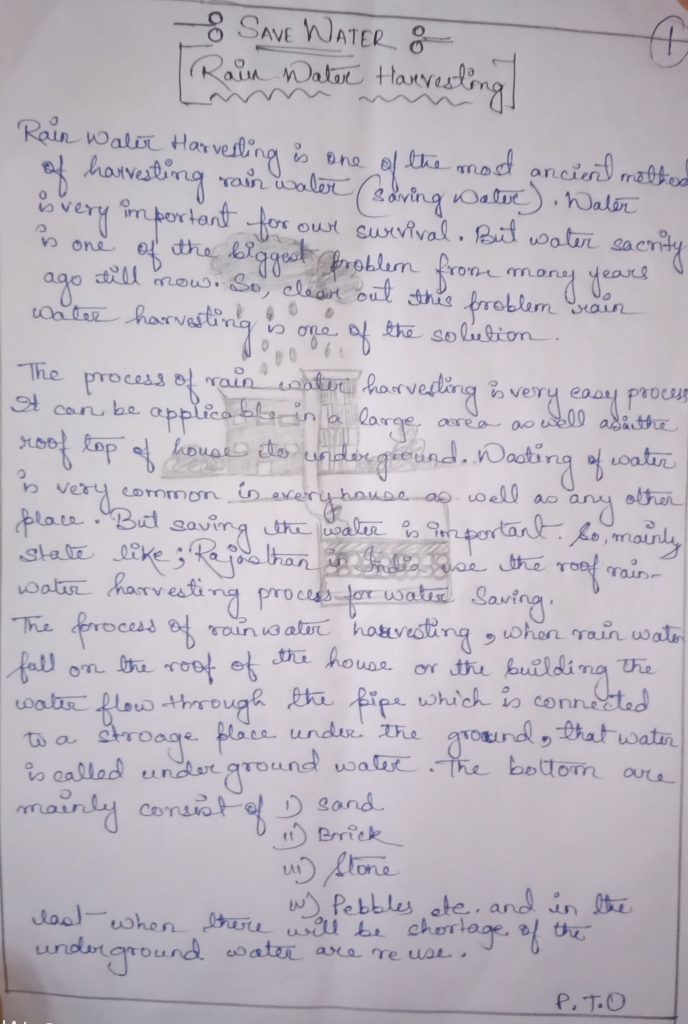 SAVE WATER
1
Rain Water Harvesting
Rain Water Harvesting is one of the most ancient method
of harvesting rain water (saving water). Water
is very important for our survival. But water sacrity
is one of the biggest problem from many years
ago till now. So, clear out this problem rain
water harvesting is one of the solution.
The process of rain water harvesting is very easy process
It can be applicable in a large area as well as in the
roof top of house to underground. Wasting of water
is very common in every house as well as any other
place. But saving the water is important. So, mainly
state like; Rajasthan in India use the roof rain-
water harvesting process for water Saving.
The process of rainwater harvesting, when rain water
fall on the roof of the house or the building the
water flow through the pipe which is connected
to a stroage place under the ground, that water
is called underground water. The bottom are
mainly consist of i) Sand
ii) Brick
iii) Stone
iv) Pebbles etc. and in the
last when there will be shortage of the
underground water are reuse.
P.T.O